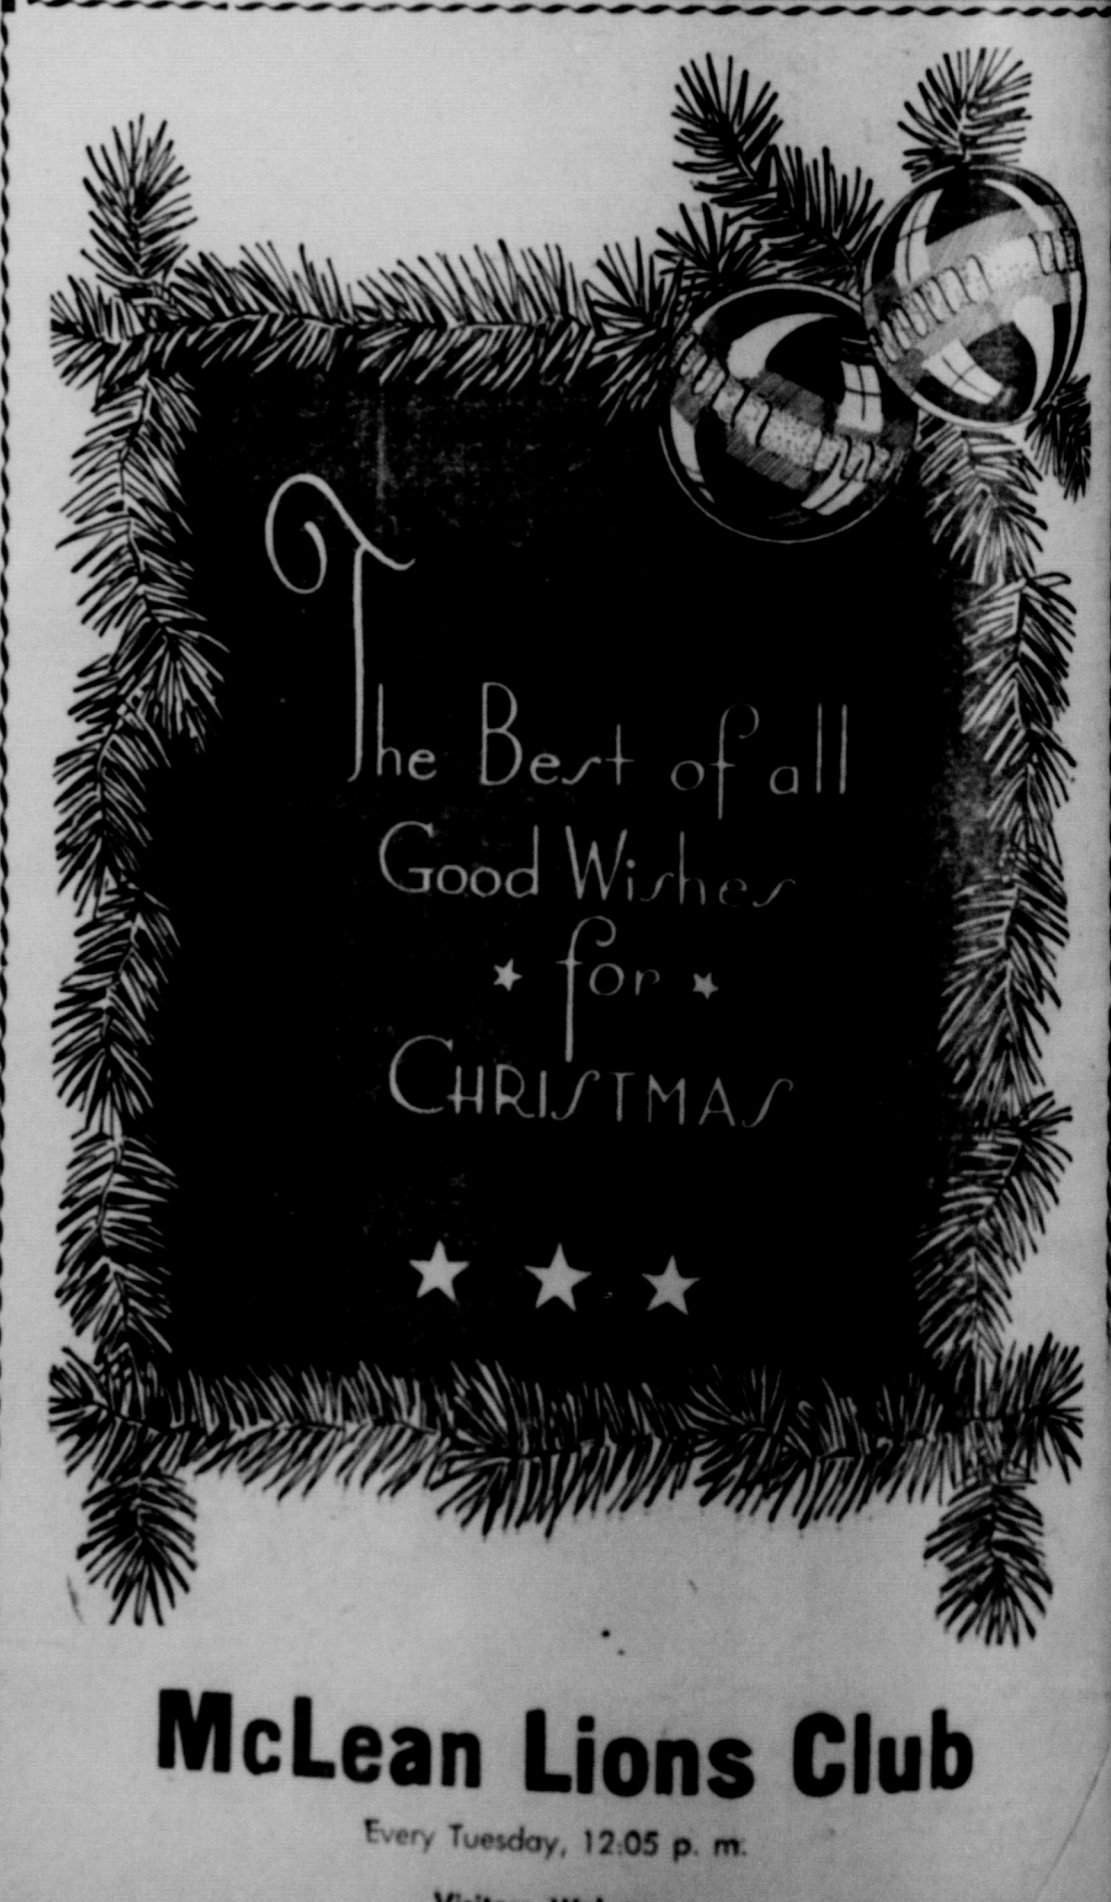 The Best of all
Good Wishes
for
CHRISTMAS
McLean Lions Club
Every Tuesday, 12:05 p. m.